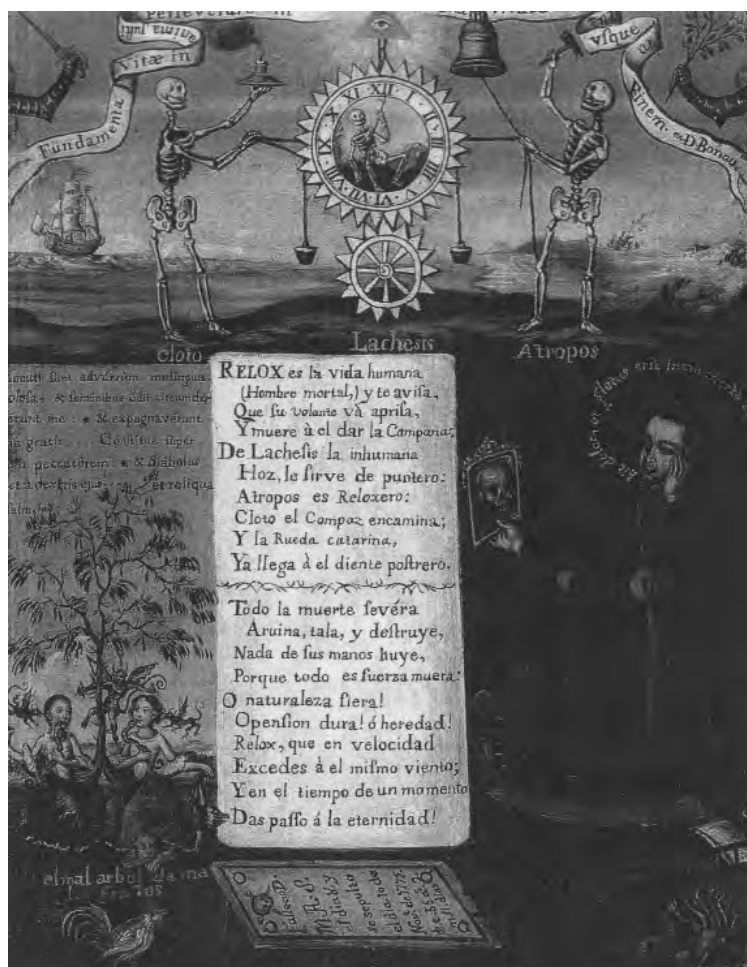 perseverare in
anima juſti
Vitæ in
Fundamenta
Vſque
Finem. ex D. Bonav
X · XI · XII · I · II · III
IX
IIII · V · VI · VII · IIII
Cloto
Lachesis
Atropos
locuti ſunt adverſum me lingua
& ſermonibus odii circumde
& expugnaverunt
gratis
ſuper
peccatorem: & diabolus
RELOX es la vida humana
(Hombre mortal,) y te aviſa,
Que ſu volante và apriſa,
Y muere à el dar la Campana;
De Lacheſis la inhumana
Hoz, le ſirve de puntero:
Atropos es Reloxero:
Cloto el Compaz encamina;
Y la Rueda catarina,
Ya llega à el diente poſtrero.
Todo la muerte ſevéra
Aruina, tala, y deſtruye,
Nada de ſus manos huye,
Porque todo es fuerza muera!
O naturaleza fiera!
O penſion dura! ó heredad!
Relox, que en velocidad
Excedes à el miſmo viento;
Y en el tiempo de un momento
Das paſſo á la eternidad!
el mal arbol da ma
Frutos
Fallecio D.
M. A. S.
el dia
se sepulto
el dia 10 de
de 1772